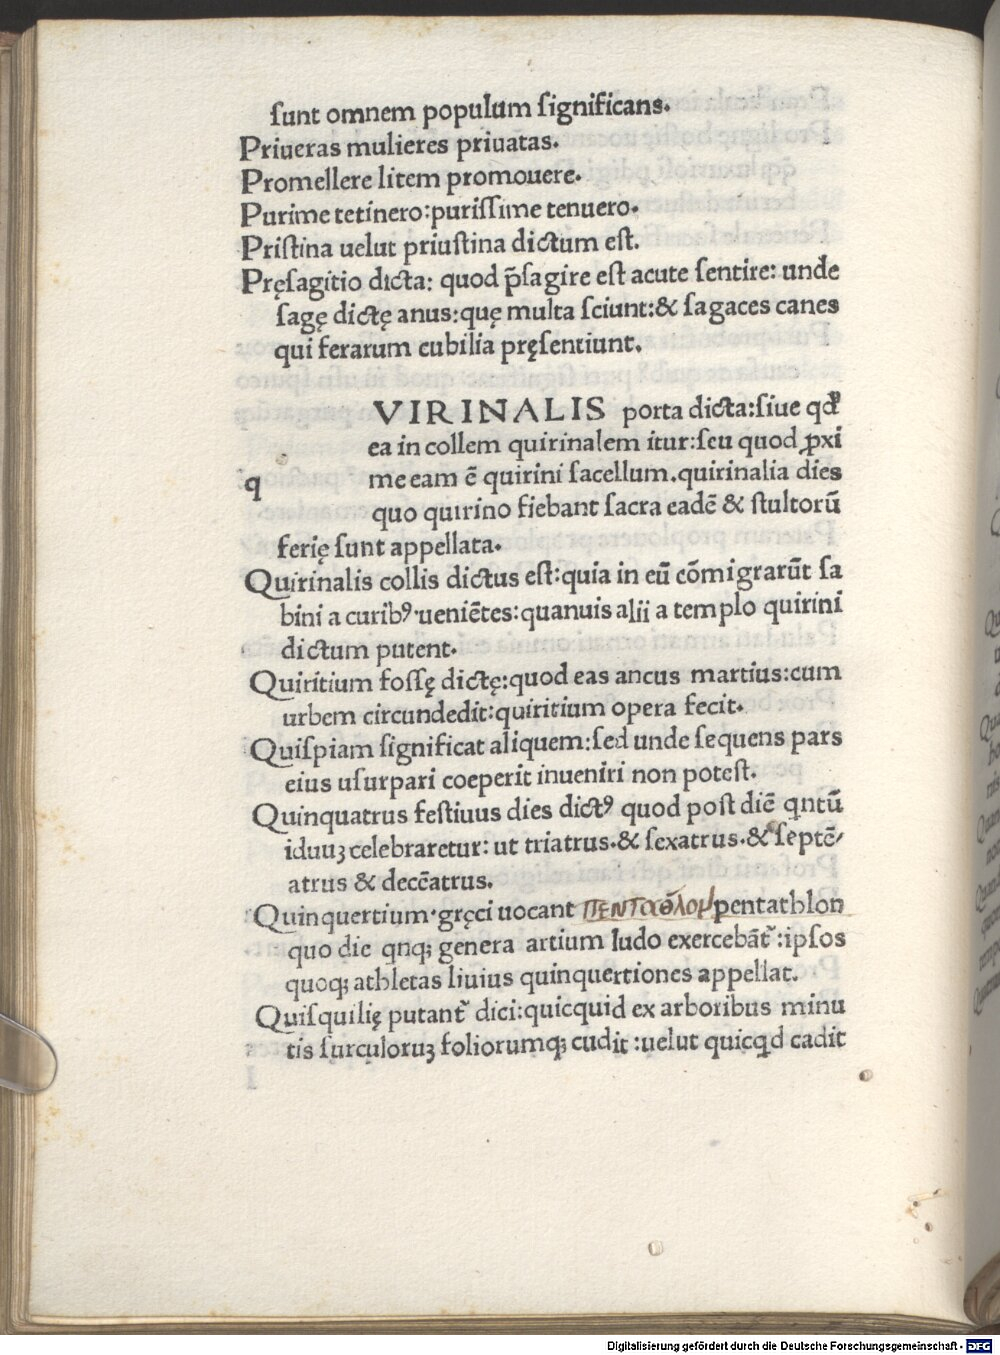 ſunt omnem populum ſignificans.
Priueras mulieres priuatas.
Promellere litem promouere.
Purime tetinero:puriſſime tenuero.
Priſtina uelut priuſtina dictum eſt.
Pręſagitio dicta: quod p̄ſagire eſt acute ſentire: unde
ſagę dictę anus:quę multa ſciunt:& ſagaces canes
qui ferarum cubilia pręſentiunt.
VIRINALIS porta dicta:ſiue qđ
ea in collem quirinalem itur:ſeu quod ꝓxi
q
me eam ē quirini ſacellum.quirinalia dies
quo quirino fiebant ſacra eadē & ſtultorū
ferię ſunt appellata.
Quirinalis collis dictus eſt:quia in eū cōmigrarūt ſa
bini a curibꝰ ueniētes:quanuis alii a templo quirini
dictum putent.
Quiritium foſſę dictę:quod eas ancus martius:cum
urbem circundedit:quiritium opera fecit.
Quiſpiam ſignificat aliquem:ſed unde ſequens pars
eius uſurpari coeperit inueniri non poteſt.
Quinquatrus feſtiuus dies dictꝰ quod poſt diē qntū
iduuꝫ celebraretur: ut triatrus.& ſexatrus.& ſeptē/
atrus & decēatrus.
Quinquertium.gręci uocant πενταθλον pentathlon
quo die qnqꝫ genera artium ludo exercebāt᷑:ipſos
quoqꝫ athletas liuius quinquertiones appellat.
Quiſquilię putant᷑ dici:quicquid ex arboribus minu
tis ſurculoruꝫ foliorumqꝫ cudit :uelut quicqd cadit
Digitalisierung gefördert durch die Deutsche Forschungsgemeinschaft - DFG